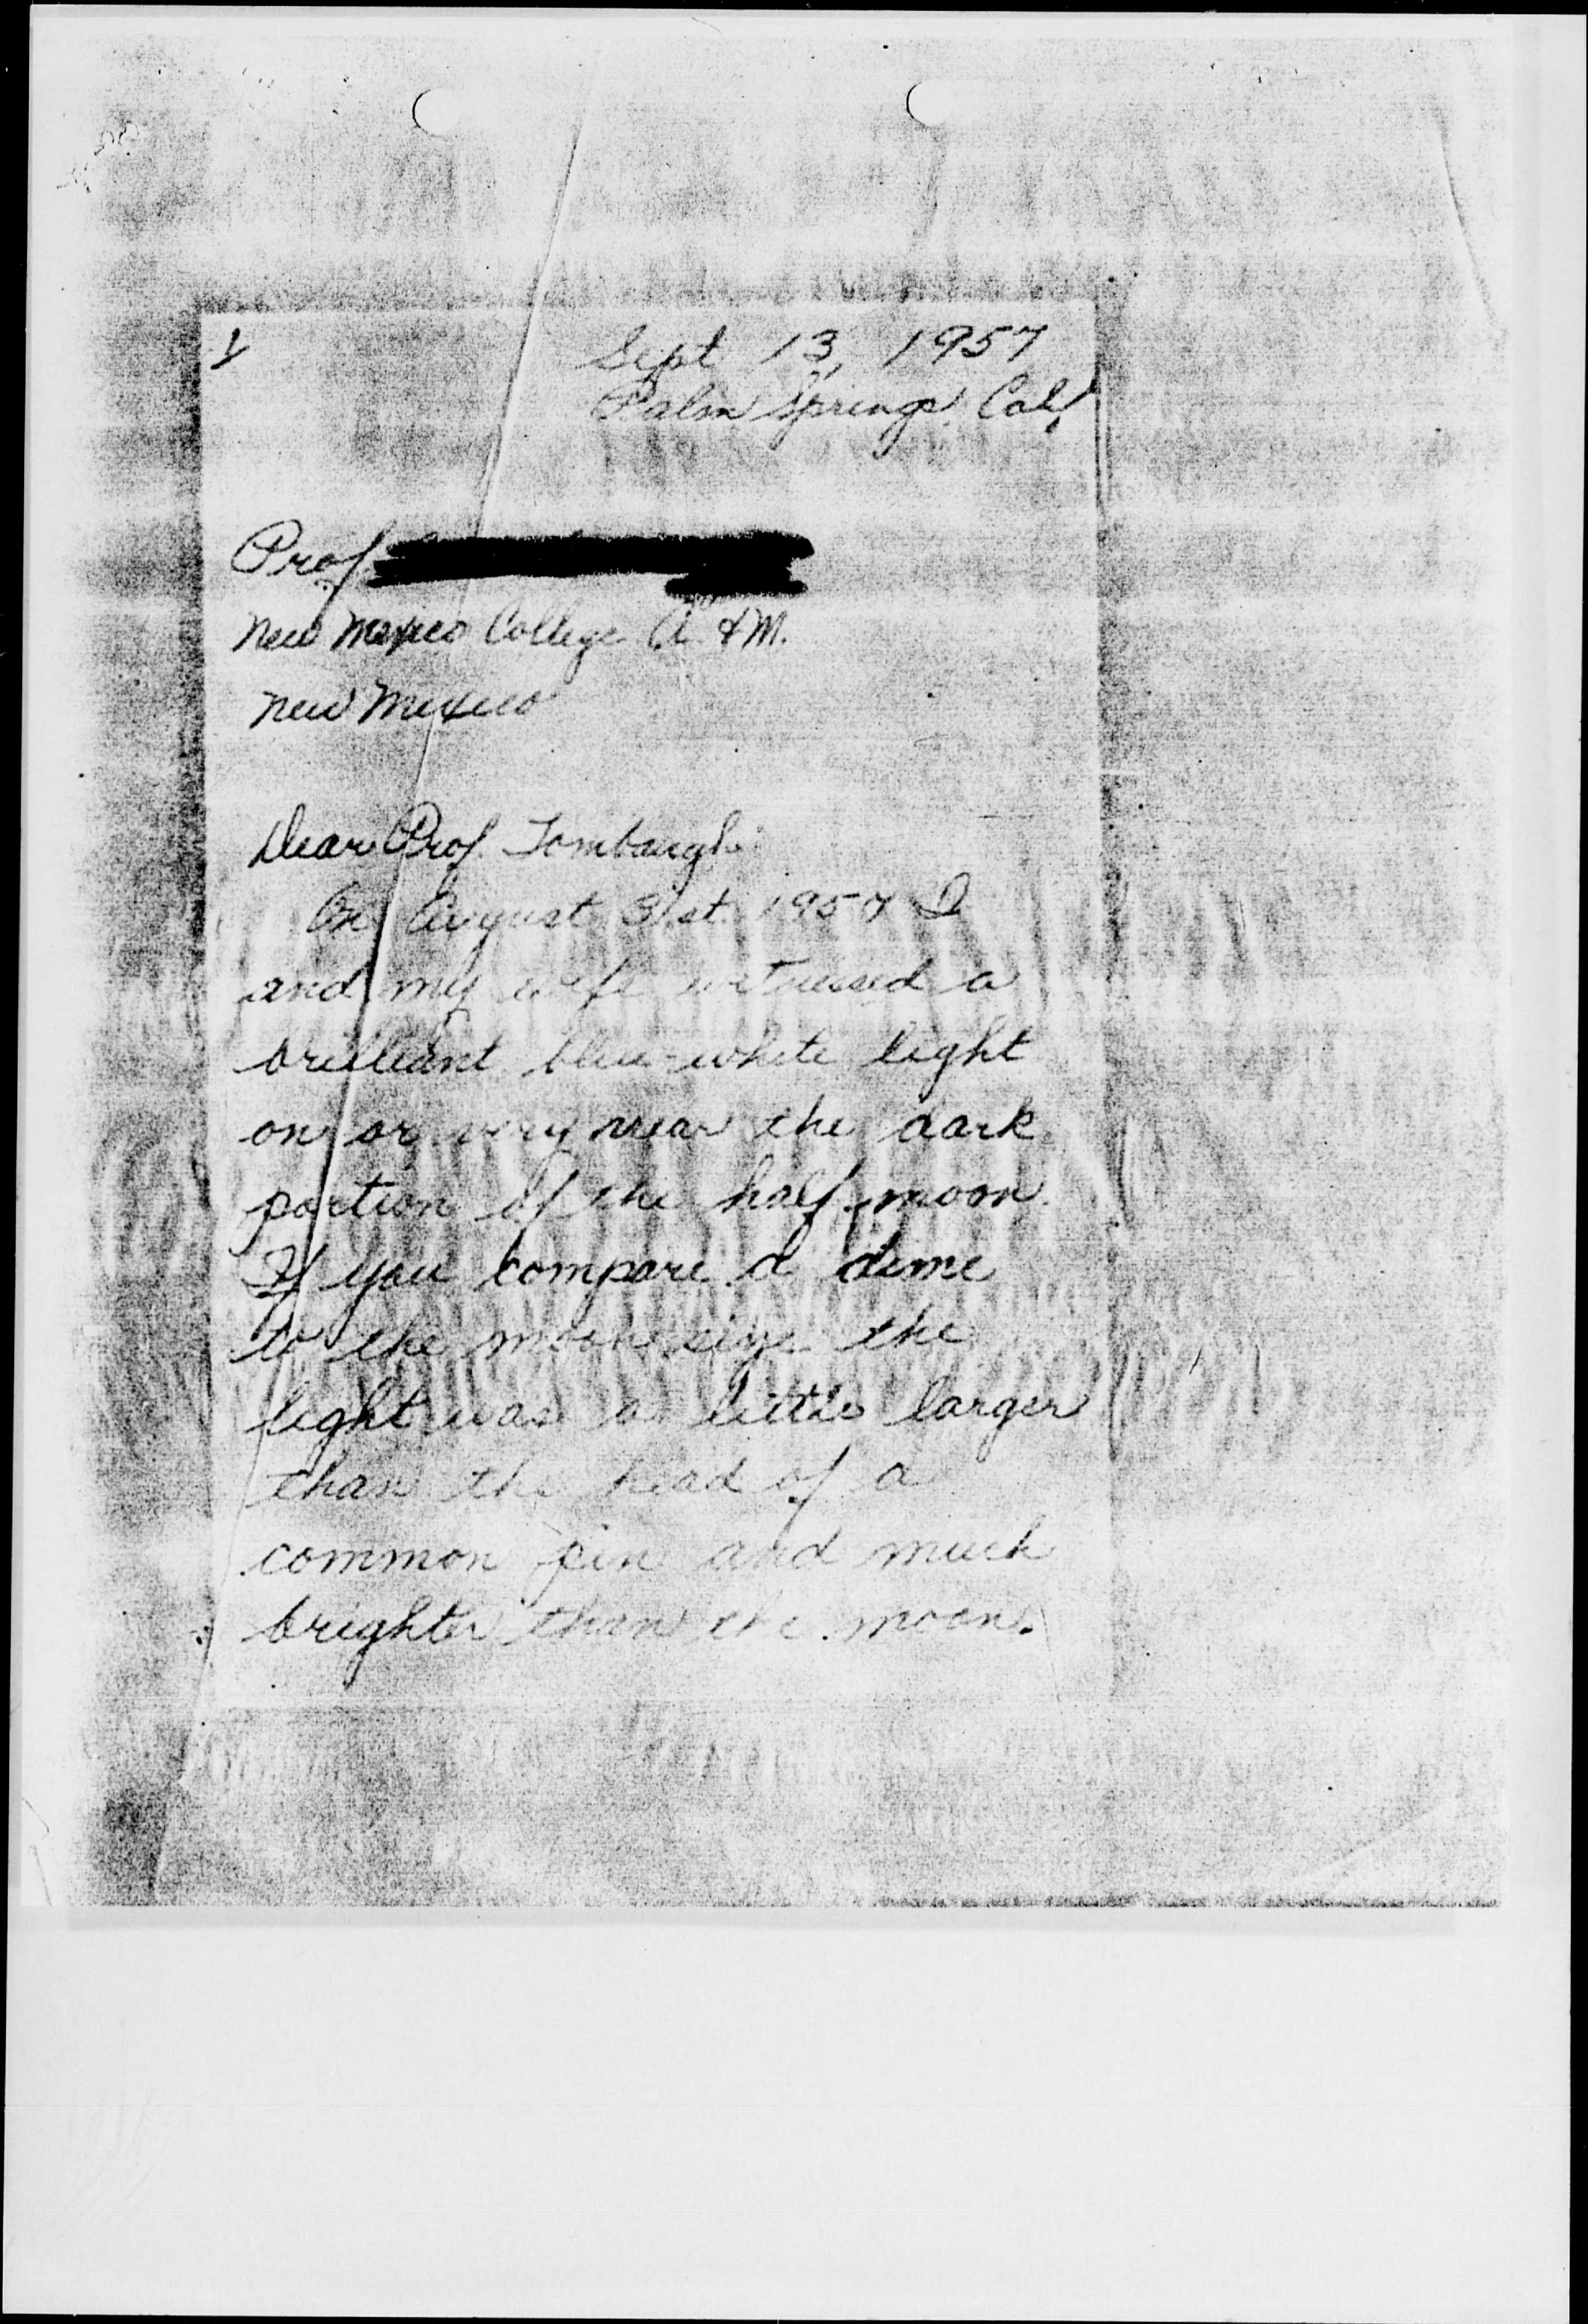 1
Sept 13, 1957
Palm Springs, Calif.
Prof.
New Mexico College A. & M.
New Mexico
Dear Prof. Tombaugh:
On August 31st 1957 I
and my wife witnessed a
brilliant blue-white light
on or very near the dark
portion of the half moon.
If you compare a dime
to the moon size the
light was a little larger
than the head of a
common pin and much
brighter than the moon.